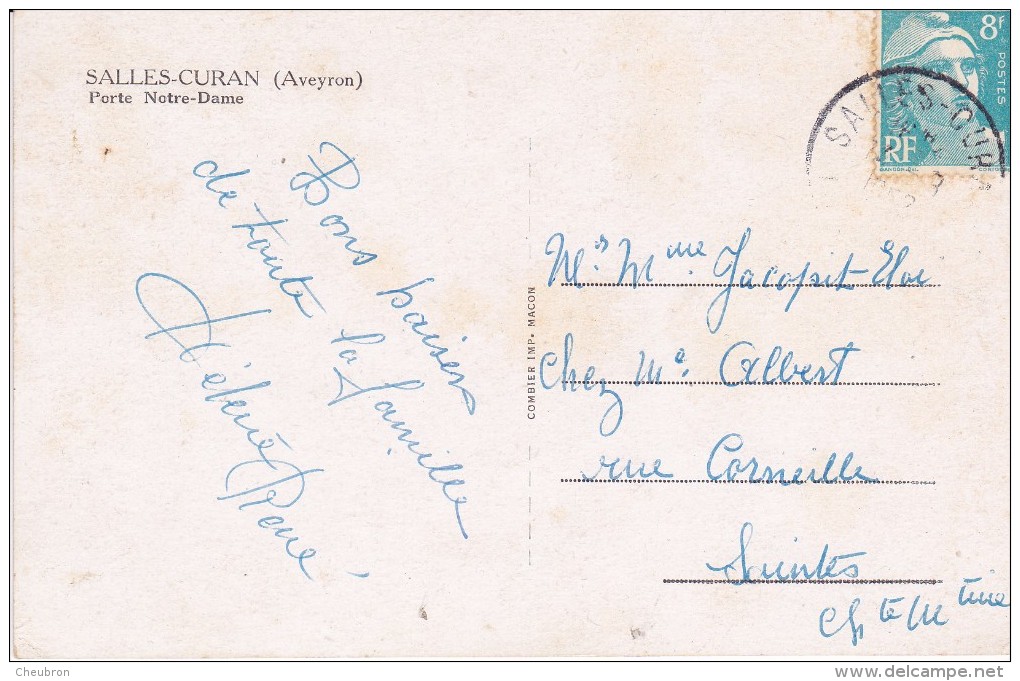 SALLES-CURAN (Aveyron)
Porte Notre-Dame
Bons baisers
de toute la famille
René
COMBIER IMP. MACON
8f
POSTES
RF
SALLES-CURAN
Mr Mme Jacopit Eloi
chez Mr. Albert
rue Corneille
Saintes
Chte Mtime
Cheubron
www.delcampe.net